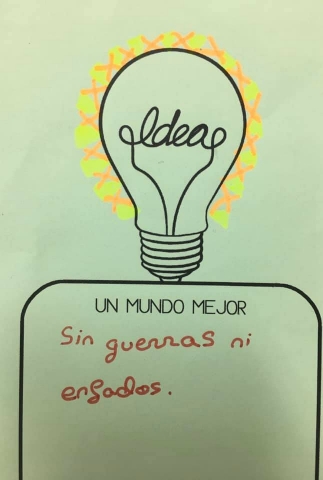 Idea
UN MUNDO MEJOR
Sin guerras ni
enfados.